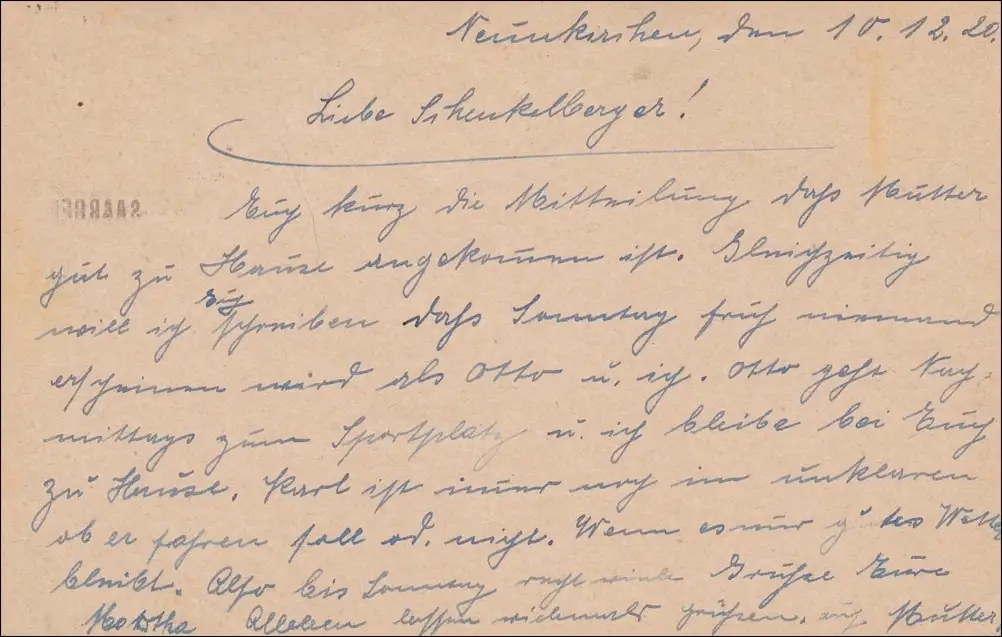 Neunkirchen, den 10.12.20.
Liebe Schenkelberger!
SAARBR
Euch kurz die Mitteilung dahs Mutter
gut zu Hause angekommen ist. Gleichzeitig
will ich Euch schreiben dahs Sonntag früh niemand
erscheinen wird als Otto u. ich. Otto geht Nach-
mittags zum Sportplatz u. ich bleibe bei Euch
zu Hause. Karl ist immer noch im unklaren
ob er fahren soll od. nicht. Wenn es nur gutes Wetter
bleibt. Also bis Sonntag recht viele Grühse Eure
Martha Alleben lassen vielmals grühsen. auch Mutter.